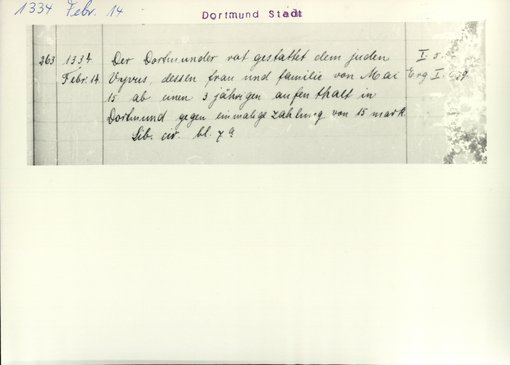 1334 Febr. 14
Dortmund Stadt
263 1334 Der Dortmunder rat gestattet dem juden I 5.
Febr. 14. Vyvus, dessen frau und familie von Mai Erg I.
15 ab einen 3 jährigen aufenthalt in
Dortmund gegen einmalige zahlung von 15 mark.
Lib. civ. bl. 7a